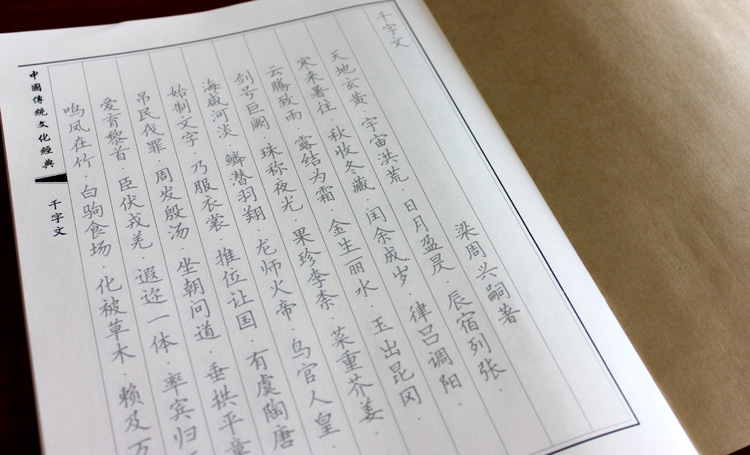 千字文
梁周兴嗣著
天地玄黄·宇宙洪荒·日月盈昃·辰宿列张·
寒来暑往·秋收冬藏·闰余成岁·律吕调阳·
云腾致雨·露结为霜·金生丽水·玉出昆冈·
剑号巨阙·珠称夜光·果珍李柰·菜重芥姜·
海咸河淡·鳞潜羽翔·龙师火帝·鸟官人皇·
始制文字·乃服衣裳·推位让国·有虞陶唐
吊民伐罪·周发殷汤·坐朝问道·垂拱平章
爱育黎首·臣伏戎羌·遐迩一体·率宾归
鸣凤在竹·白驹食场·化被草木·赖及万
中國傳統文化經典
千字文